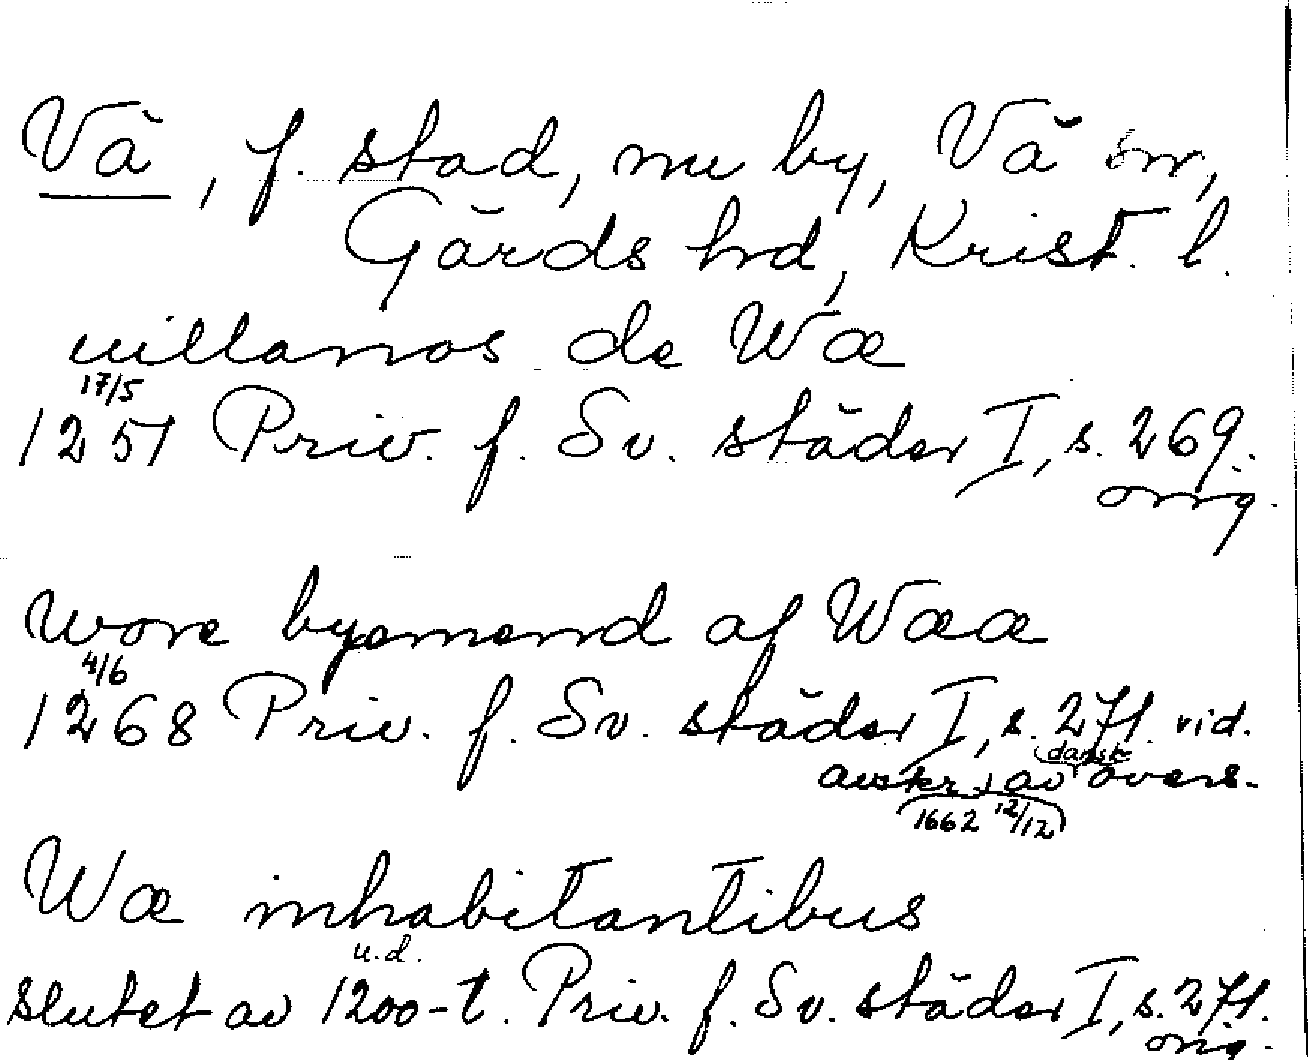 Vä, f. stad, nu by, Vä sn,
Gärds hd, Krist. l.
uillanos de Wæ
17/5
1251 Priv. f. Sv. städer I, s. 269.
orig.
wore byemend af Wææ
4/6
1268 Priv. f. Sv. städer I, s. 271. vid.
dansk
avskr. av övers.
1662 12/12
Wæ inhabitantibus
u.d.
slutet av 1200-t. Priv. f. Sv. städer I, s. 271.
orig.